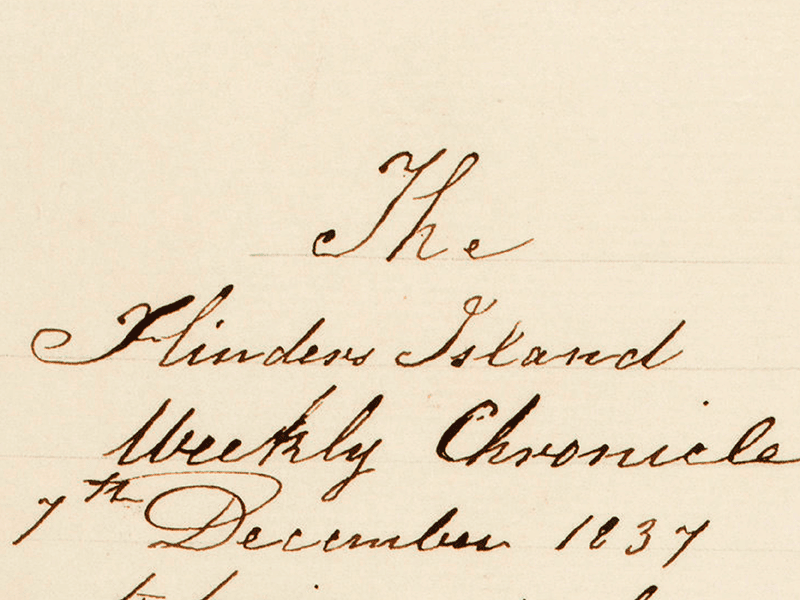 The
Flinders Island
Weekly Chronicle
7th December 1837